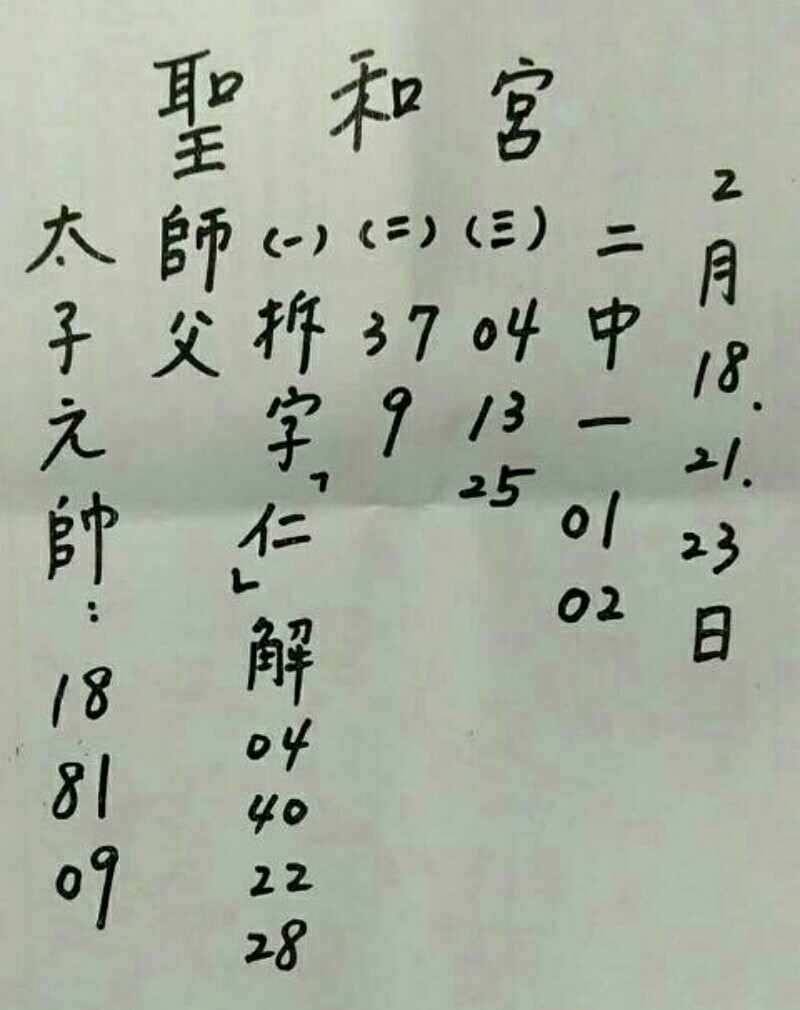 聖和宮
2月18.21.23日
二中一 01 02
(三) 04 13 25
(二) 37 9
(一) 拆字「仁」解 04 40 22 28
師父
太子元帥: 18 81 09